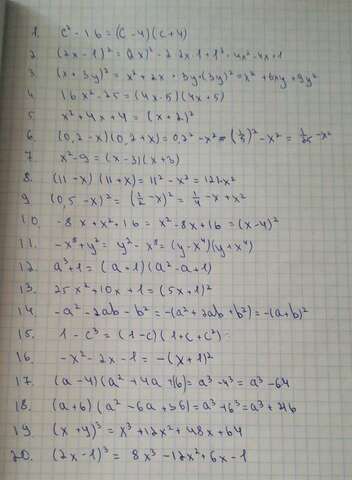 1. c² - 16 = (c - 4)(c + 4)
2. (2x - 1)² = (2x)² - 2·2x·1 + 1² = 4x² - 4x + 1
3. (x + 3y)² = x² + 2x · 3y + (3y)² = x² + 6xy + 9y²
4. 16x² - 25 = (4x - 5)(4x + 5)
5. x² + 4x + 4 = (x + 2)²
6. (0,2 - x)(0,2 + x) = 0,2² - x² = (1/5)² - x² = 1/25 - x²
7. x² - 9 = (x - 3)(x + 3)
8. (11 - x)(11 + x) = 11² - x² = 121 - x²
9. (0,5 - x)² = (1/2 - x)² = 1/4 - x + x²
10. -8x + x² + 16 = x² - 8x + 16 = (x - 4)²
11. -x⁸ + y² = y² - x⁸ = (y - x⁴)(y + x⁴)
12. a³ + 1 = (a + 1)(a² - a + 1)
13. 25x² + 10x + 1 = (5x + 1)²
14. -a² - 2ab - b² = -(a² + 2ab + b²) = -(a + b)²
15. 1 - c³ = (1 - c)(1 + c + c²)
16. -x² - 2x - 1 = -(x + 1)²
17. (a - 4)(a² + 4a + 16) = a³ - 4³ = a³ - 64
18. (a + 6)(a² - 6a + 36) = a³ + 6³ = a³ + 216
19. (x + 4)³ = x³ + 12x² + 48x + 64
20. (2x - 1)³ = 8x³ - 12x² + 6x - 1